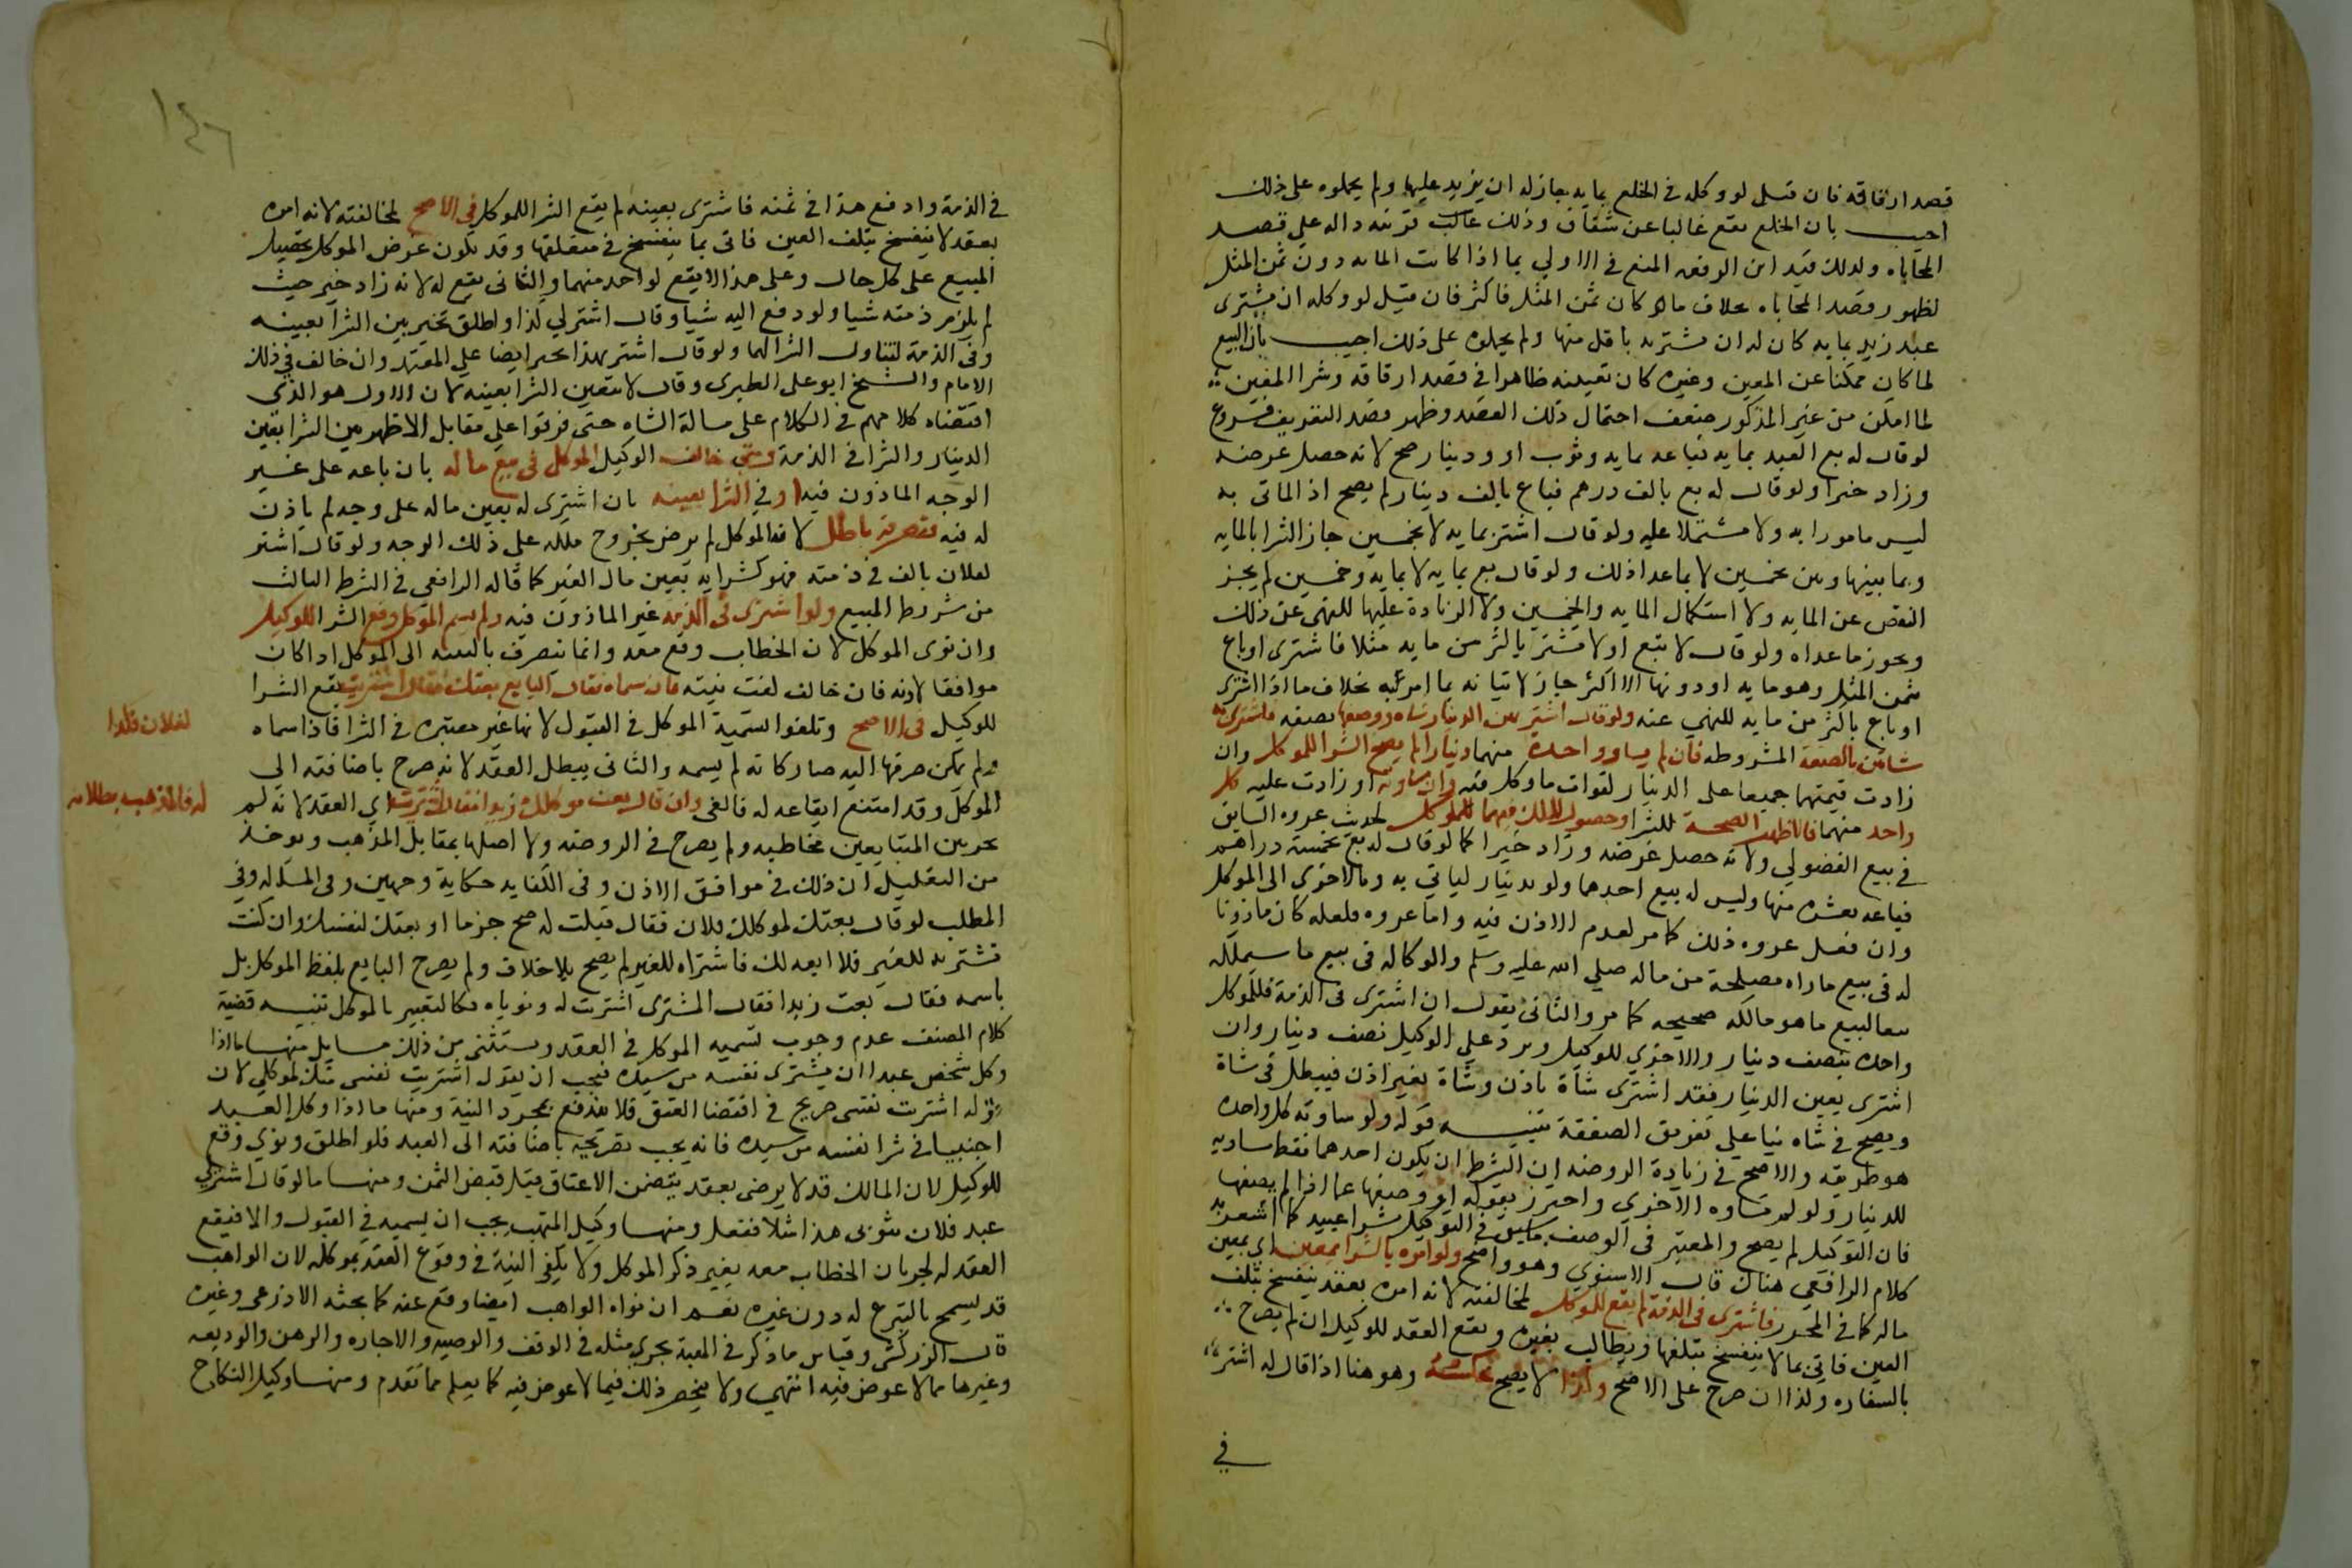 قصد ارفاقه فان قيل لو وكله في الخلع بمايه جاز له ان يزيد عليها ولم يحملوه على ذلك
اجيب بان الخلع يقع غالبا عن شقاق وذلك قرينه داله على قصد
المحاباه ولذلك قيد ابن الرفعه المنع في الاولي بما اذا كانت المايه دون ثمن المثل
لظهور قصد المحاباه بخلاف ما لو كان ثمن المثل فاكثر فان قيل لو وكله ان يشترى
عبد زيد بمايه كان له ان يشتريه باقل منها ولم يحملوه على ذلك اجيب بان البيع
لما كان ممكنا عن المعين وغيره كان تعيينه ظاهرا في قصد ارفاقه وشرا المعين
لما امكن من غير المذكور ضعف احتمال ذلك القصد وظهر قصد التعريف فروع
لو قال له بع العبد بمايه فباعه بمايه وثوب او ودينار صح لانه حصل غرضه
وزاد خيرا ولو قال له بع بالف درهم فباع بالف دينار لم يصح اذ الماتى به
ليس مامورا به ولا مشتملا عليه ولو قال اشتر بمايه لا بخمسين جاز الشرا بالمايه
وبما بينها وبين خمسين لا بما عدا ذلك ولو قال بع بمايه لا بمايه وخمسين لم يجز
النقص عن المايه ولا استكمال المايه والخمسين ولا الزيادة عليها للنهى عن ذلك
ويجوز ما عداه ولو قال لا تبع او لا تشتر باكثر من مايه مثلا فاشترى او باع
بثمن المثل وهو مايه او دونها لا اكثر جاز لاتيانه بما امر به بخلاف ما اذا اشترى
او باع باكثر من مايه للنهي عنه ولو قال اشتر بهذا الدينار شاه ووصفها بصفه فاشترى به
شاتين بالصفة المشروطه فان لم يساو واحدة منهما دينارا لم يصح الشرا للموكل وان
زادت قيمتهما جميعا على الدينار لفوات ما وكل فيه وان ساوته او زادت عليه كل
واحد منهما فالاظهر الصحة للشرا وحصول الملك فيهما للموكل لحديث عروه السابق
في بيع الفضولي ولانه حصل غرضه وزاد خيرا كما لو قال له بع بخمسة دراهم
فباعه بعشره منها وليس له بيع احدهما ولو بدينار لياتي به وبالاخرى الى الموكل
وان فعل عروه ذلك كما مر لعدم الاذن فيه واما عروه فلعله كان ماذونا
له في بيع ما راه مصلحة من ماله صلي الله عليه وسلم والوكاله في بيع ما سيملكه
تبعا لبيع ما هو مالكه صحيحه كما مر والثانى يقول ان اشترى فى الذمة فللموكل
واحده بنصف دينار والاخرى للوكيل ويرد علي الوكيل نصف دينار وان
اشترى بعين الدينار فقد اشترى شاة باذن وشاة بغير اذن فيبطل في شاة
ويصح في شاه بنا علي تفريق الصفقة تنبيه قوله ولو ساوته كل واحده
هو طريقه والاصح في زيادة الروضه ان الشرط ان يكون احدهما فقط مساويه
للدينار ولو لم تساوه الاخرى واحترز بقوله ووصفها عما اذا لم يصفها
فان التوكيل لم يصح والمعتبر فى الوصف ما سبق في التوكيل بشرا عبيد كما اشعر به
كلام الرافعى هناك قال الاسنوي وهو واضح ولو امره بالشرا بمعين اي بعين
ماله كما في المحرر فاشترى فى الذمة لم يقع للموكل لمخالفته لانه امره بعقد ينفسخ بتلف
العين فاتى بما لا ينفسخ بتلفها ويطالب بغيره ويقع العقد للوكيل ان لم يصرح
بالسفاره وكذا ان صرح على الاصح وكذا لا يصح عكسه وهو هنا اذا قال له اشتر
في
١٤٦
في الذمة وادفع هذا في ثمنه فاشترى بعينه لم يقع الشرا للموكل في الاصح لمخالفته لانه امره
بعقد لا ينفسخ بتلف العين فاتى بما ينفسخ في متعلقها وقد يكون غرض الموكل تحصيل
المبيع على كل حال وعلى هذا لا يقع لواحد منهما والثانى يقع له لانه زاد خير حيث
لم يلزم ذمته شيا ولو دفع اليه شيا وقال اشتر لي كذا واطلق تخير بين الشرا بعينه
وفى الذمة لتناول الشرا لهما ولو قال اشتر بهذا تخير ايضا علي المعتمد وان خالف في ذلك
الامام والشيخ ابو على الطبرى وقال لا يتعين الشرا بعينه لان الاول هو الذى
اقتضاه كلامهم في الكلام على مسالة الشاه حتى فرقوا علي مقابل الاظهر بين الشرا بعين
الدينار والشرا في الذمة ومتى خالف الوكيل الموكل فى بيع ماله بان باعه على غير
الوجه الماذون فيه او في الشرا بعينه بان اشترى له بعين ماله على وجه لم ياذن
له فيه فتصرفه باطل لان الموكل لم يرض بخروج ملكه على ذلك الوجه ولو قال اشتر
لفلان بالف في ذمته فهو كشرايه بعين مال الغير كما قاله الرافعى في الشرط الثالث
من شروط المبيع ولو اشترى فى الذمة غير الماذون فيه ولم يسم الموكل وقع الشرا للوكيل
وان نوى الموكل لان الخطاب وقع معه وانما ينصرف بالنيه الى الموكل اذا كان
موافقا لاذنه فان خالف لغت نيته فان سماه فقال البايع بعتك فقال اشتريت يقع الشرا
للوكيل فى الاصح وتلغوا تسمية الموكل في القبول لانها غير معتبره في الشرا فاذا سماه
ولم يمكن صرفها اليه صار كانه لم يسمه والثانى يبطل العقد لانه صرح باضافته الى
الموكل وقد امتنع ايقاعه له فالغى وان قال بعت موكلك زيدا فقال اشتريت اي العقد لانه لم
يجر بين المتبايعين مخاطبه ولم يصرح في الروضه ولا اصلها بمقابل المذهب ويوخذ
من التعليل ان ذلك في موافق الاذن وفى الكفايه حكاية وجهين وفى المساله وفي
المطلب لو قال بعتك لموكلك فلان فقال قبلت له صح جزما او بعتك لنفسك وان كنت
تشتريه للغير فلا ابعه لك فاشتراه للغير لم يصح بلا خلاف ولم يصرح البايع بلفظ الموكل بل
باسمه فقال بعت زيدا فقال المشترى اشتريت له ونوياه فكالتعبير بالموكل تنبيه قضية
كلام المصنف عدم وجوب تسميه الموكل في العقد ويستثنى من ذلك مسايل منها ما اذا
وكل شخص عبدا ان يشترى نفسه من سيده فيجب ان يقول اشتريت نفسى منك لموكلي لان
قوله اشتريت نفسى صريح في اقتضا العتق فلا يندفع بمجرد النية ومنها ما اذا وكل العبد
اجنبيا في شرا نفسه من سيده فانه يجب تصريحه باضافته الى العبد فلو اطلق ونوي وقع
للوكيل لان المالك قد لا يرضى بعقد يتضمن الاعتاق قبل قبض الثمن ومنها ما لو قال اشتر لي
عبد فلان بثوبى هذا مثلا ففعل ومنها وكيل المتهب يجب ان يسميه في القبول والا فيقع
العقد له لجريان الخطاب معه بغير ذكر الموكل ولا يكفى النية في وقوع العقد لموكله لان الواهب
قد يسمح بالتبرع له دون غيره نعم ان نواه الواهب ايضا وقع عنه كما بحثه الاذرعى وغيره
قال الزركشى وقياس ما ذكر في الهبة يجري مثله في الوقف والوصيه والاجاره والرهن والوديعه
وغيرها مما لا عوض فيه انتهى ولا ينحصر ذلك فيما لا عوض فيه كما يعلم مما تقدم ومنها وكيل النكاح
لفلان فكذا
له فالمذهب بطلانه